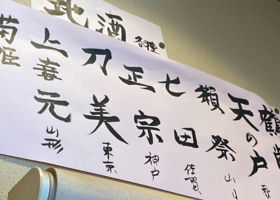 地酒 各種
鶴
天の戸
獺祭 山
七田 佐賀
正宗 神戸
刀美 東京
上喜元 山形
菊姫